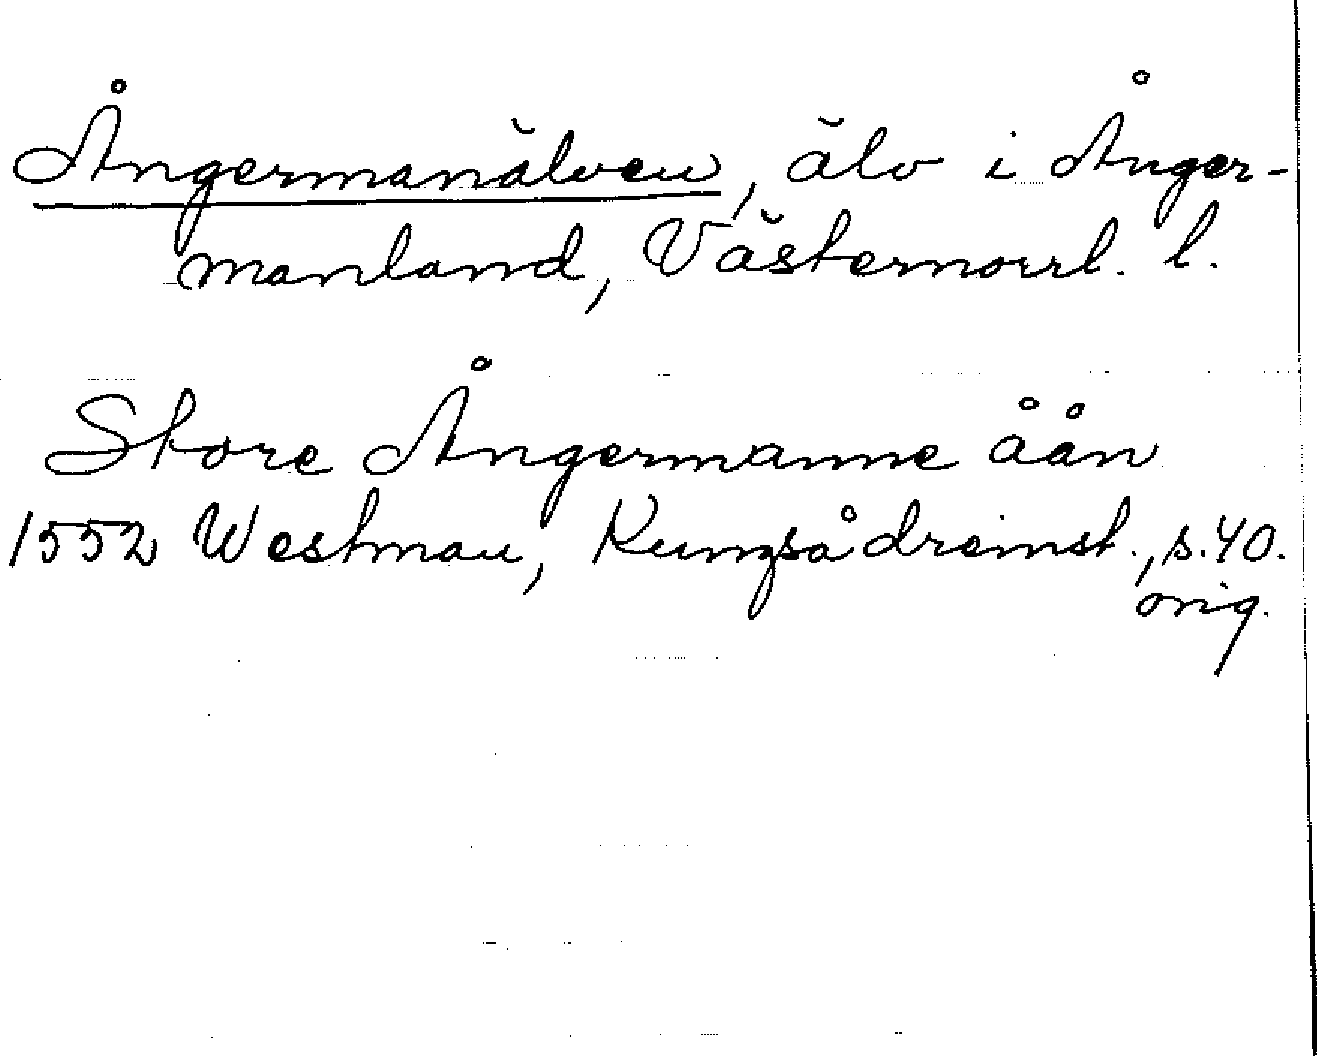 Ångermanälven, älv i Ånger-
manland, Västernorrl. l.
Store Ångermanne åån
1552 Westman, Kungsådreinst., s. 40.
orig.